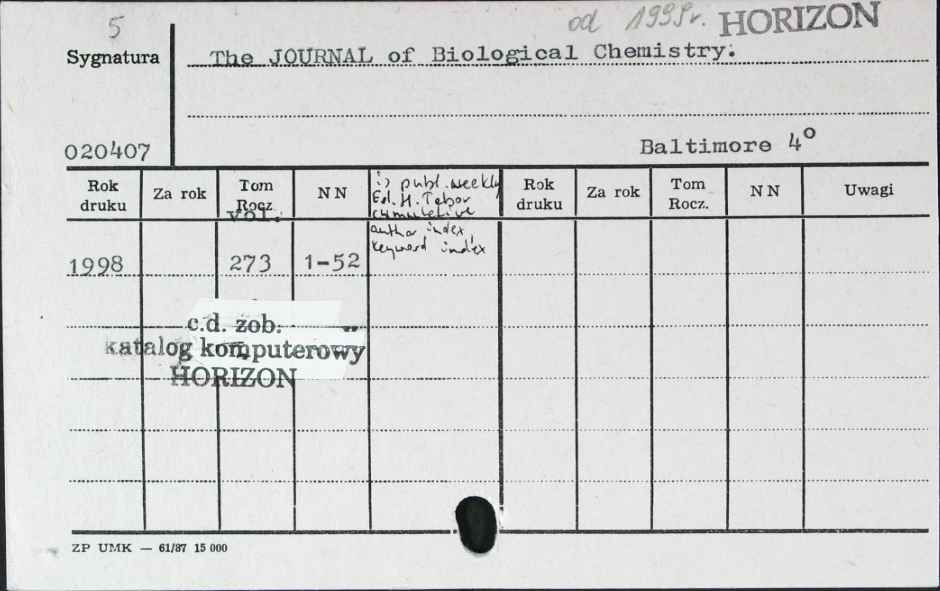 5
od 1998r. HORIZON
Sygnatura
The JOURNAL of Biological Chemistry.
020407
Baltimore 4°
Rok druku
Za rok
Tom Rocz.
vol.
NN
publ. weekly
Ed. H. Tabor
cumulative
author index,
keyword index
Rok druku
Za rok
Tom Rocz.
NN
Uwagi
1998 273 1-52
c.d. zob.
katalog komputerowy
HORIZON
ZP UMK — 61/87 15 000